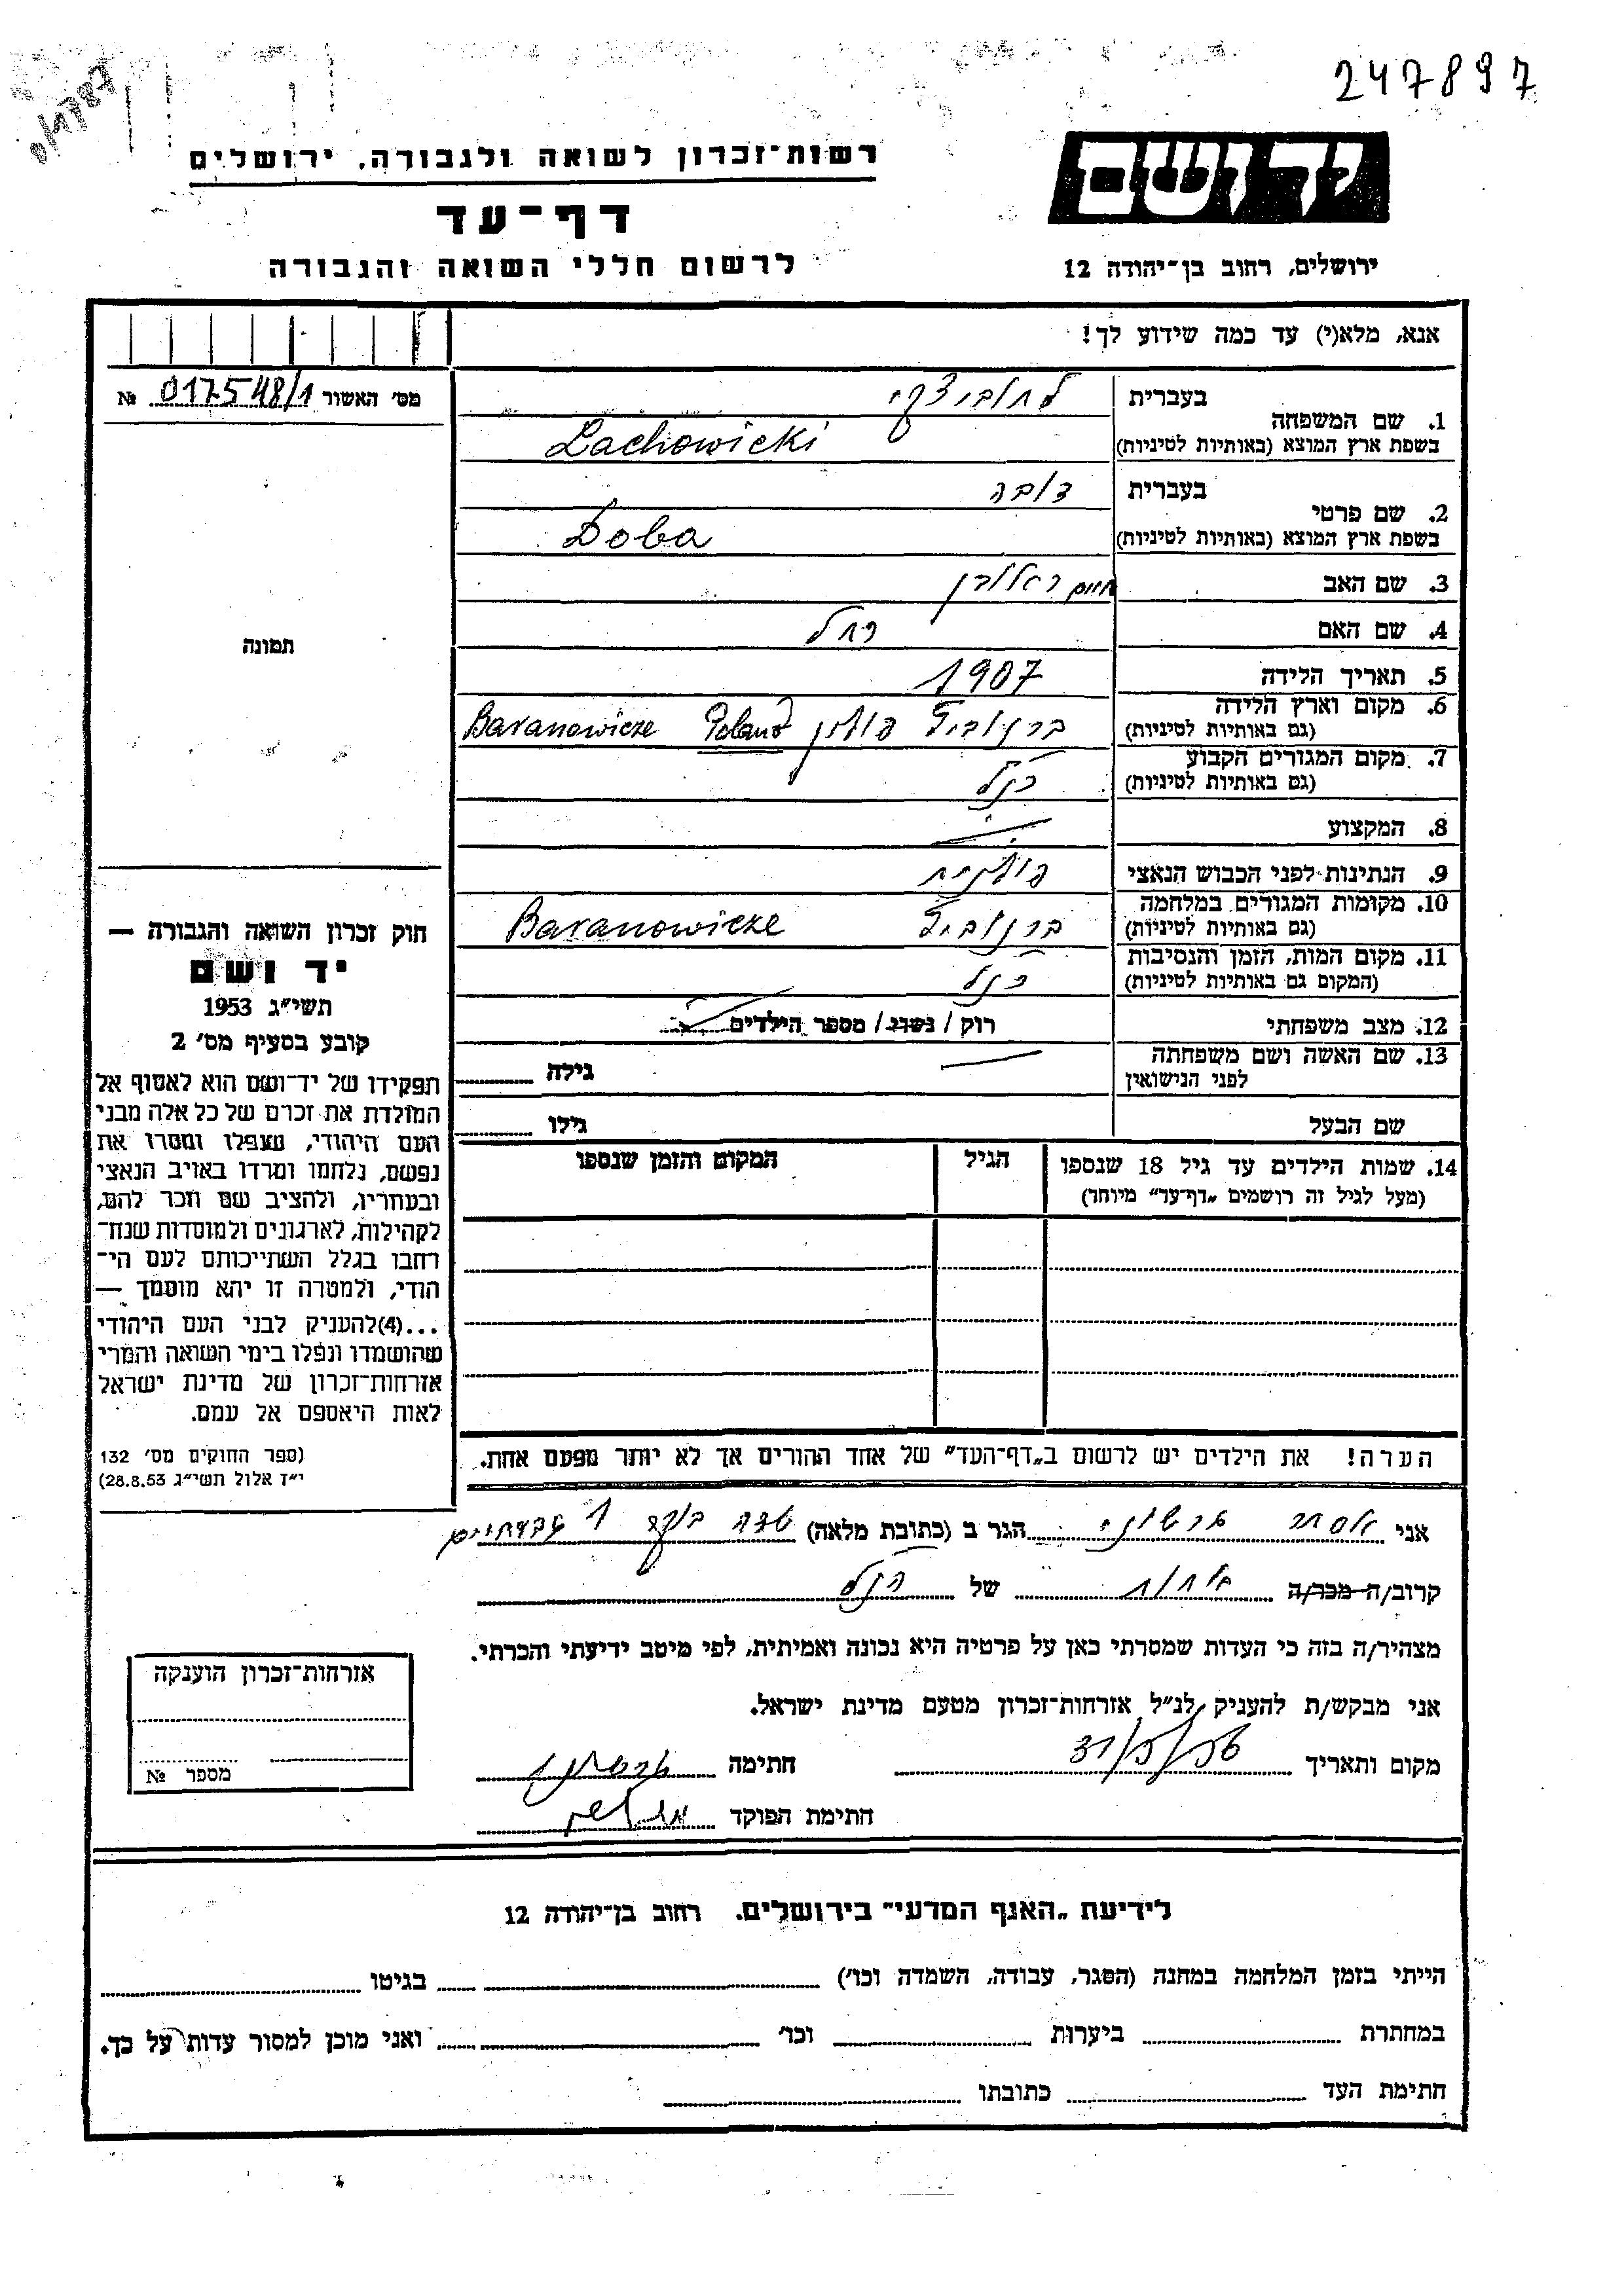 247897
יד ושם
רשות־זכרון לשואה ולגבורה, ירושלים
דף־עד
לרשום חללי השואה והגבורה
ירושלים, רחוב בן־יהודה 12
אנא, מלא(י) עד כמה שידוע לך!
מס׳ האשור 017548/1 №
תמונה
בעברית לחוביצקי
1. שם המשפחה
בשפת ארץ המוצא (באותיות לטיניות) Lachowicki
בעברית דובה
2. שם פרטי
בשפת ארץ המוצא (באותיות לטיניות) Doba
3. שם האב חיים ראובן
4. שם האם רחל
5. תאריך הלידה 1907
6. מקום וארץ הלידה ברנוביץ פולין Poland Baranowicze
(גם באותיות לטיניות)
7. מקום המגורים הקבוע
(גם באותיות לטיניות) כנ"ל
8. המקצוע
9. הנתינות לפני הכבוש הנאצי פולנית
10. מקומות המגורים במלחמה ברנוביץ Baranowicze
(גם באותיות לטיניות)
11. מקום המות, הזמן והנסיבות
(המקום גם באותיות לטיניות) כנ"ל
12. מצב משפחתי רוק / נשוי / מספר הילדים
13. שם האשה ושם משפחתה
לפני הנישואין גילה
שם הבעל גילו
14. שמות הילדים עד גיל 18 שנספו
(מעל לגיל זה רושמים „דף־עד״ מיוחד)
הגיל
המקום והזמן שנספו
חוק זכרון השואה והגבורה —
יד ושם
תשי״ג 1953
קובע בסעיף מס׳ 2
תפקידו של יד־ושם הוא לאסוף אל
המולדת את זכרם של כל אלה מבני
העם היהודי, שנפלו ומסרו את
נפשם, נלחמו ומרדו באויב הנאצי
ובעוזריו, ולהציב שם וזכר להם,
לקהילות, לארגונים ולמוסדות שנח־
רחבו בגלל השתייכותם לעם הי־
הודי, ולמטרה זו יהא מוסמך —
...(4)להעניק לבני העם היהודי
שהושמדו ונפלו בימי השואה והמרי
אזרחות־זכרון של מדינת ישראל
לאות היאספם אל עמם.
(ספר החוקים מס׳ 132
י״ד אלול תשי״ג 28.8.53)
הערה! את הילדים יש לרשום ב„דף־העד״ של אחד ההורים אך לא יותר מפעם אחת.
אני אסתר הגר ב (כתובת מלאה) שדה בוקר 1 גבעתיים
קרוב/ה מכר/ה אחות של הנ"ל
מצהיר/ה בזה כי העדות שמסרתי כאן על פרטיה היא נכונה ואמיתית, לפי מיטב ידיעתי והכרתי.
אני מבקש/ת להעניק לנ״ל אזרחות־זכרון מטעם מדינת ישראל.
מקום ותאריך חתימה
חתימת הפוקד
אזרחות־זכרון הוענקה
מספר №
לידיעת „האגף המדעי״ בירושלים. רחוב בן־יהודה 12
הייתי בזמן המלחמה במחנה (הסגר, עבודה, השמדה וכו׳) בגיטו
במחתרת ביערות וכו׳ ואני מוכן למסור עדות על כך.
חתימת העד כתובתו